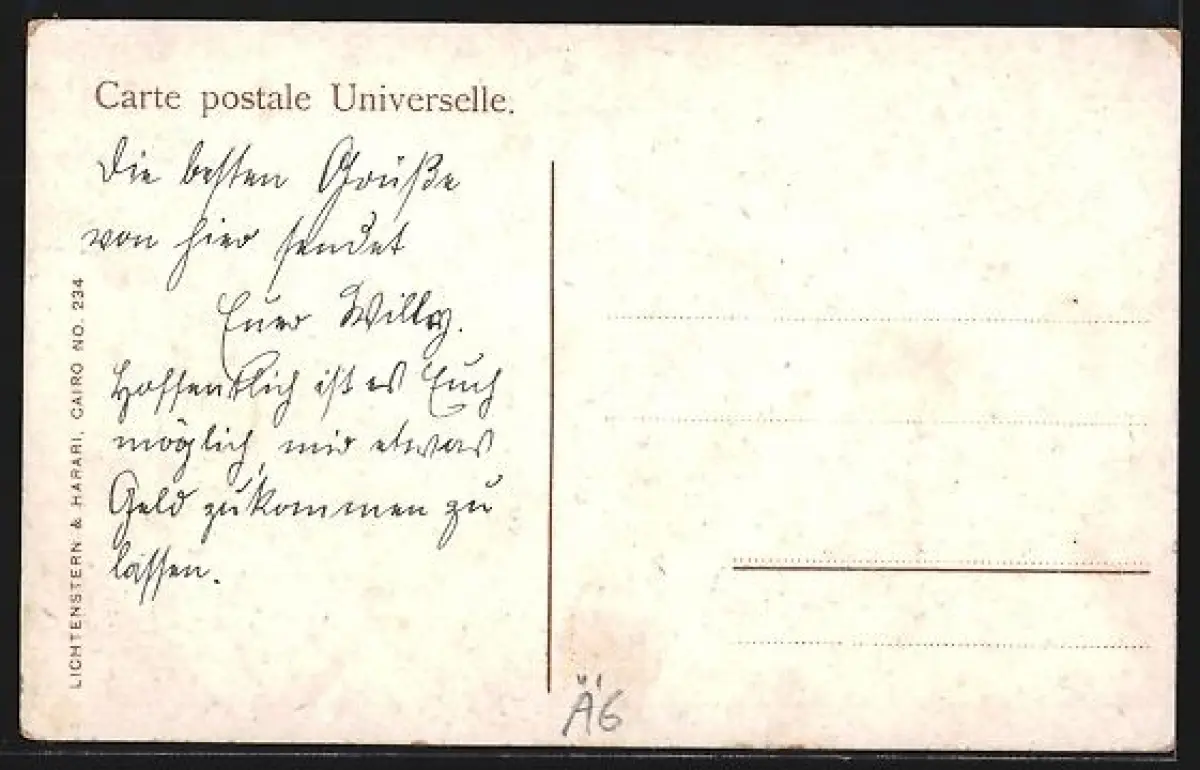 Carte postale Universelle.
Die besten Grüße
von hier sendet
Euer Willy.
Hoffentlich ist es Euch
möglich, mir etwas
Geld zukommen zu
lassen.
LICHTENSTERN & HARARI, CAIRO NO. 234
ÄG